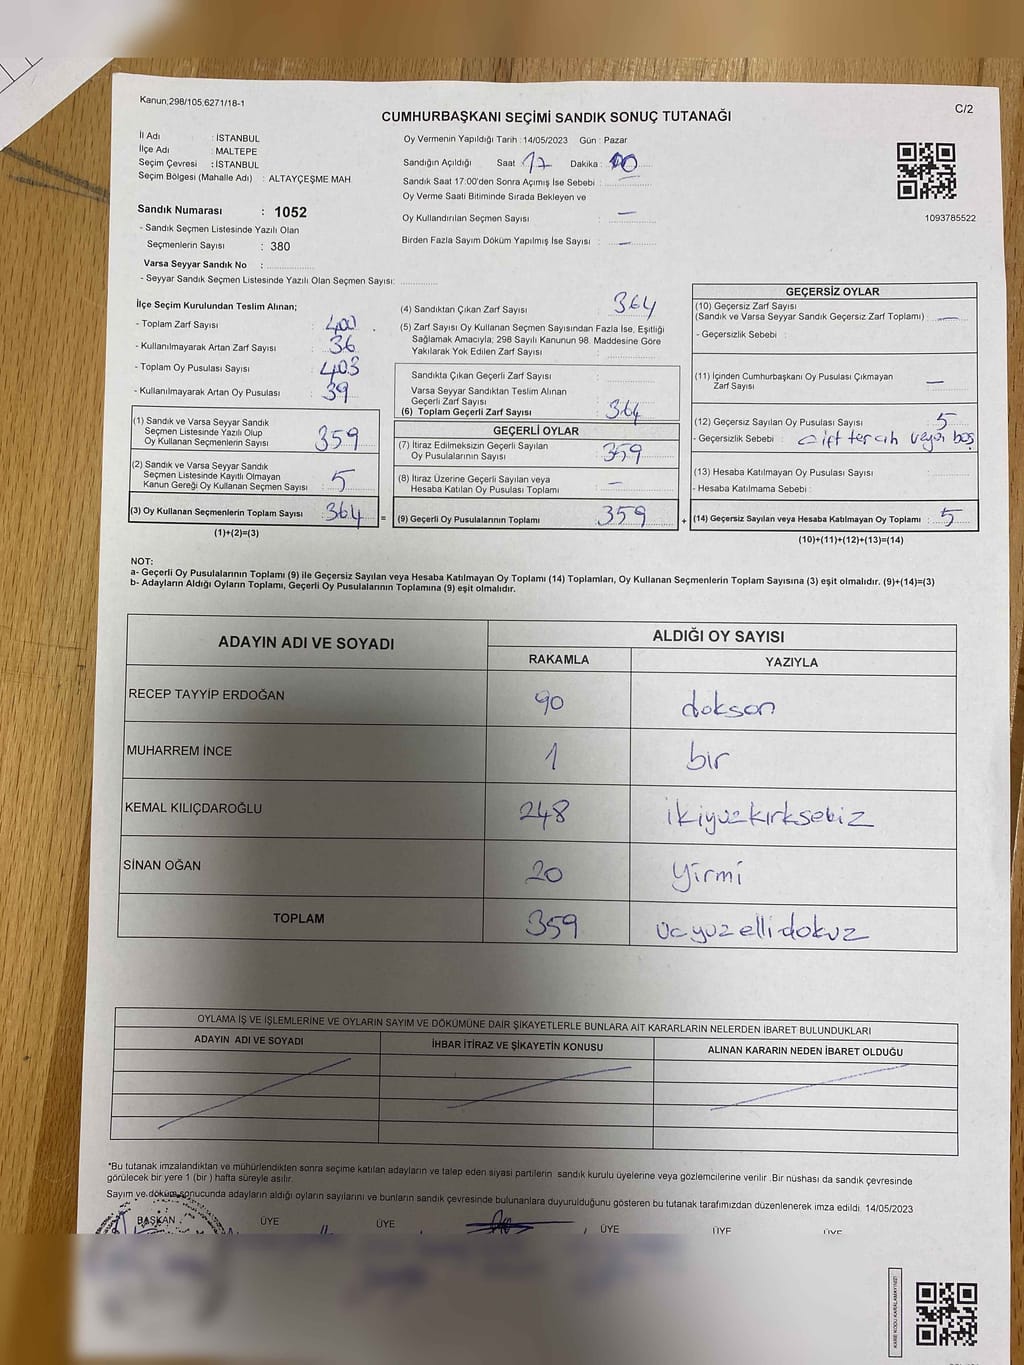 Kanun;298/105,6271/18-1
C/2
CUMHURBAŞKANI SEÇİMİ SANDIK SONUÇ TUTANAĞI
İl Adı : İSTANBUL
İlçe Adı : MALTEPE
Seçim Çevresi : İSTANBUL
Seçim Bölgesi (Mahalle Adı) : ALTAYÇEŞME MAH.
Sandık Numarası : 1052
- Sandık Seçmen Listesinde Yazılı Olan
Seçmenlerin Sayısı : 380
Varsa Seyyar Sandık No :
- Seyyar Sandık Seçmen Listesinde Yazılı Olan Seçmen Sayısı:
Oy Vermenin Yapıldığı Tarih : 14/05/2023 Gün : Pazar
Sandığın Açıldığı Saat 17 Dakika : 00
Sandık Saat 17:00'den Sonra Açımış İse Sebebi :
Oy Verme Saati Bitiminde Sırada Bekleyen ve
Oy Kullandırılan Seçmen Sayısı : —
Birden Fazla Sayım Döküm Yapılmış İse Sayısı : —
1093785522
İlçe Seçim Kurulundan Teslim Alınan;
- Toplam Zarf Sayısı : 400
- Kullanılmayarak Artan Zarf Sayısı : 36
- Toplam Oy Pusulası Sayısı : 403
- Kullanılmayarak Artan Oy Pusulası : 39
(1) Sandık ve Varsa Seyyar Sandık
Seçmen Listesinde Yazılı Olup
Oy Kullanan Seçmenlerin Sayısı : 359
(2) Sandık ve Varsa Seyyar Sandık
Seçmen Listesinde Kayıtlı Olmayan
Kanun Gereği Oy Kullanan Seçmen Sayısı : 5
(3) Oy Kullanan Seçmenlerin Toplam Sayısı : 364 =
(1)+(2)=(3)
(4) Sandıktan Çıkan Zarf Sayısı : 364
(5) Zarf Sayısı Oy Kullanan Seçmen Sayısından Fazla İse, Eşitliği
Sağlamak Amacıyla; 298 Sayılı Kanunun 98. Maddesine Göre
Yakılarak Yok Edilen Zarf Sayısı :
Sandıkta Çıkan Geçerli Zarf Sayısı :
Varsa Seyyar Sandıktan Teslim Alınan
Geçerli Zarf Sayısı :
(6) Toplam Geçerli Zarf Sayısı : 364
GEÇERLİ OYLAR
(7) İtiraz Edilmeksizin Geçerli Sayılan
Oy Pusulalarının Sayısı : 359
(8) İtiraz Üzerine Geçerli Sayılan veya
Hesaba Katılan Oy Pusulası Toplamı : —
(9) Geçerli Oy Pusulalarının Toplamı : 359 +
GEÇERSİZ OYLAR
(10) Geçersiz Zarf Sayısı
(Sandık ve Varsa Seyyar Sandık Geçersiz Zarf Toplamı) : —
- Geçersizlik Sebebi :
(11) İçinden Cumhurbaşkanı Oy Pusulası Çıkmayan
Zarf Sayısı : —
(12) Geçersiz Sayılan Oy Pusulası Sayısı : 5
- Geçersizlik Sebebi : Çift tercih veya boş
(13) Hesaba Katılmayan Oy Pusulası Sayısı :
- Hesaba Katılmama Sebebi :
(14) Geçersiz Sayılan veya Hesaba Katılmayan Oy Toplamı : 5
(10)+(11)+(12)+(13)=(14)
NOT:
a- Geçerli Oy Pusulalarının Toplamı (9) ile Geçersiz Sayılan veya Hesaba Katılmayan Oy Toplamı (14) Toplamları, Oy Kullanan Seçmenlerin Toplam Sayısına (3) eşit olmalıdır. (9)+(14)=(3)
b- Adayların Aldığı Oyların Toplamı, Geçerli Oy Pusulalarının Toplamına (9) eşit olmalıdır.
ADAYIN ADI VE SOYADI ALDIĞI OY SAYISI
RAKAMLA YAZIYLA
RECEP TAYYİP ERDOĞAN 90 doksan
MUHARREM İNCE 1 bir
KEMAL KILIÇDAROĞLU 248 ikiyuzkırksekiz
SİNAN OĞAN 20 yirmi
TOPLAM 359 ucyuzellidokuz
OYLAMA İŞ VE İŞLEMLERİNE VE OYLARIN SAYIM VE DÖKÜMÜNE DAİR ŞİKAYETLERLE BUNLARA AİT KARARLARIN NELERDEN İBARET BULUNDUKLARI
ADAYIN ADI VE SOYADI İHBAR İTİRAZ VE ŞİKAYETİN KONUSU ALINAN KARARIN NEDEN İBARET OLDUĞU
*Bu tutanak imzalandıktan ve mühürlendikten sonra seçime katılan adayların ve talep eden siyasi partilerin sandık kurulu üyelerine veya gözlemcilerine verilir .Bir nüshası da sandık çevresinde
görülecek bir yere 1 (bir ) hafta süreyle asılır.
Sayım ve döküm sonucunda adayların aldığı oyların sayılarını ve bunların sandık çevresinde bulunanlara duyurulduğunu gösteren bu tutanak tarafımızdan düzenlenerek imza edildi. 14/05/2023
BAŞKAN ÜYE ÜYE ÜYE ÜYE ÜYE